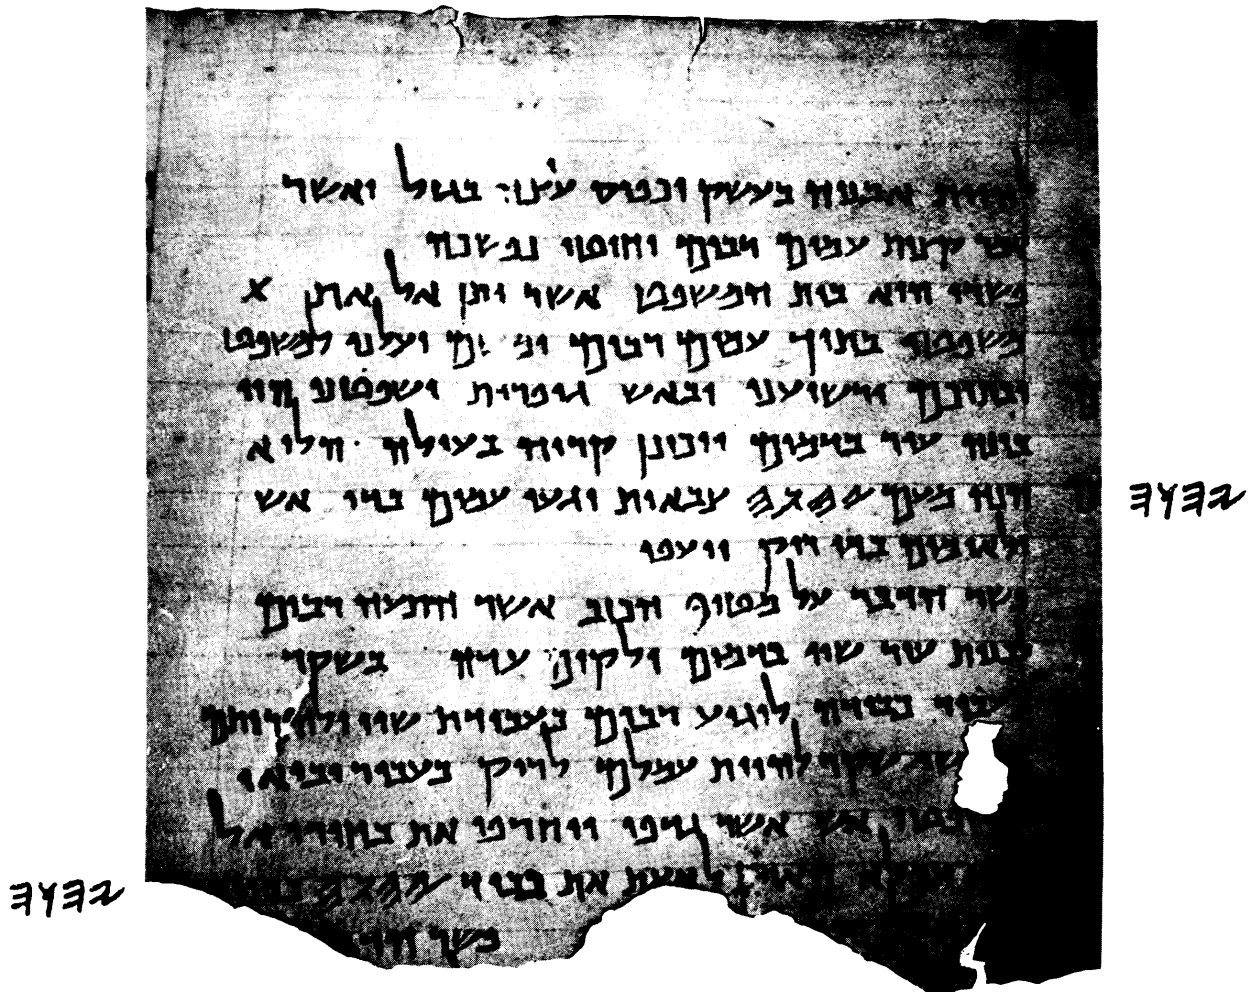 להיות אבניה בעשק וכפיס עיצה בגזל ואשר
אמר קצות עמים רבים וחוטי נפשכה
פשרו הוא בית המשפט אשר יתן אל את X
משפטו בתוך עמים רבים ומשם יעלנו למשפט
ובתוכם ירשיענו ובאש גופרית ישפטנו הוי
בונה עיר בדמים ויכונן קריה בעולה הלוא
הנה מעם 𐤉𐤄𐤅𐤄 צבאות יגעו עמים בדי אש
𐤉𐤄𐤅𐤄
ולאומים בדי ריק ייעפו
פשר הדבר על מטיף הכזב אשר התעה רבים
לבנות עיר שוו בדמים ולקים עדה בשקר
בעבור כבודה לוגיע רבים בעבודת שוו ולהרותם
שקר להיות עמלם לריק בעבור יבואו
אש אשר גדפו ויחרפו את בחירי אל
הארץ לדעת את כבוד 𐤉𐤄𐤅𐤄
𐤉𐤄𐤅𐤄
פשר